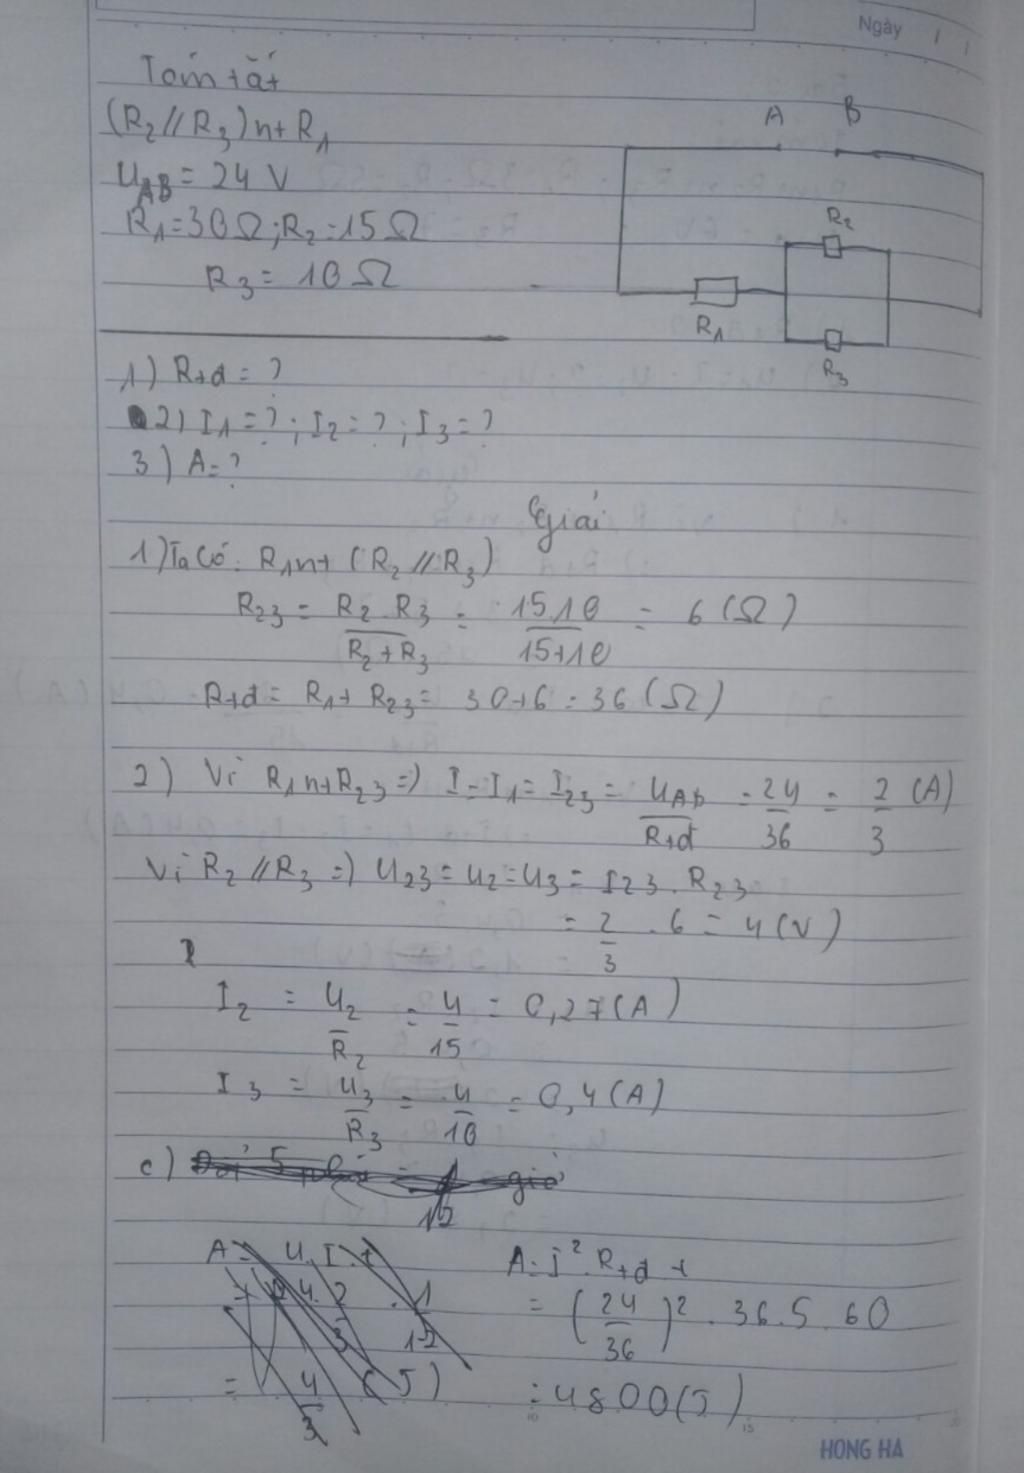 Ngày
Tóm tắt
(R2 // R3) nt R1
UAB = 24 V
R1 = 30Ω; R2 = 15Ω
R3 = 10Ω
A B
R2
R1
R3
1) Rtđ = ?
2) I1 = ?; I2 = ?; I3 = ?
3) A = ?
Giải
1) Ta có: R1 nt (R2 // R3)
R23 = R2.R3 / R2+R3 = 15.10 / 15+10 = 6 (Ω)
Rtđ = R1 + R23 = 30+6 = 36 (Ω)
2) Vì R1 nt R23 => I = I1 = I23 = UAB / Rtđ = 24/36 = 2/3 (A)
Vì R2 // R3 => U23 = U2 = U3 = I23 . R23
= 2/3 . 6 = 4 (V)
I2 = U2/R2 = 4/15 = 0,27 (A)
I3 = U3/R3 = 4/10 = 0,4 (A)
c)
A = U.I.t
A = I² . Rtđ t
= (24/36)² . 36.5.60
= 4800 (J)
10 15 20
HONG HA